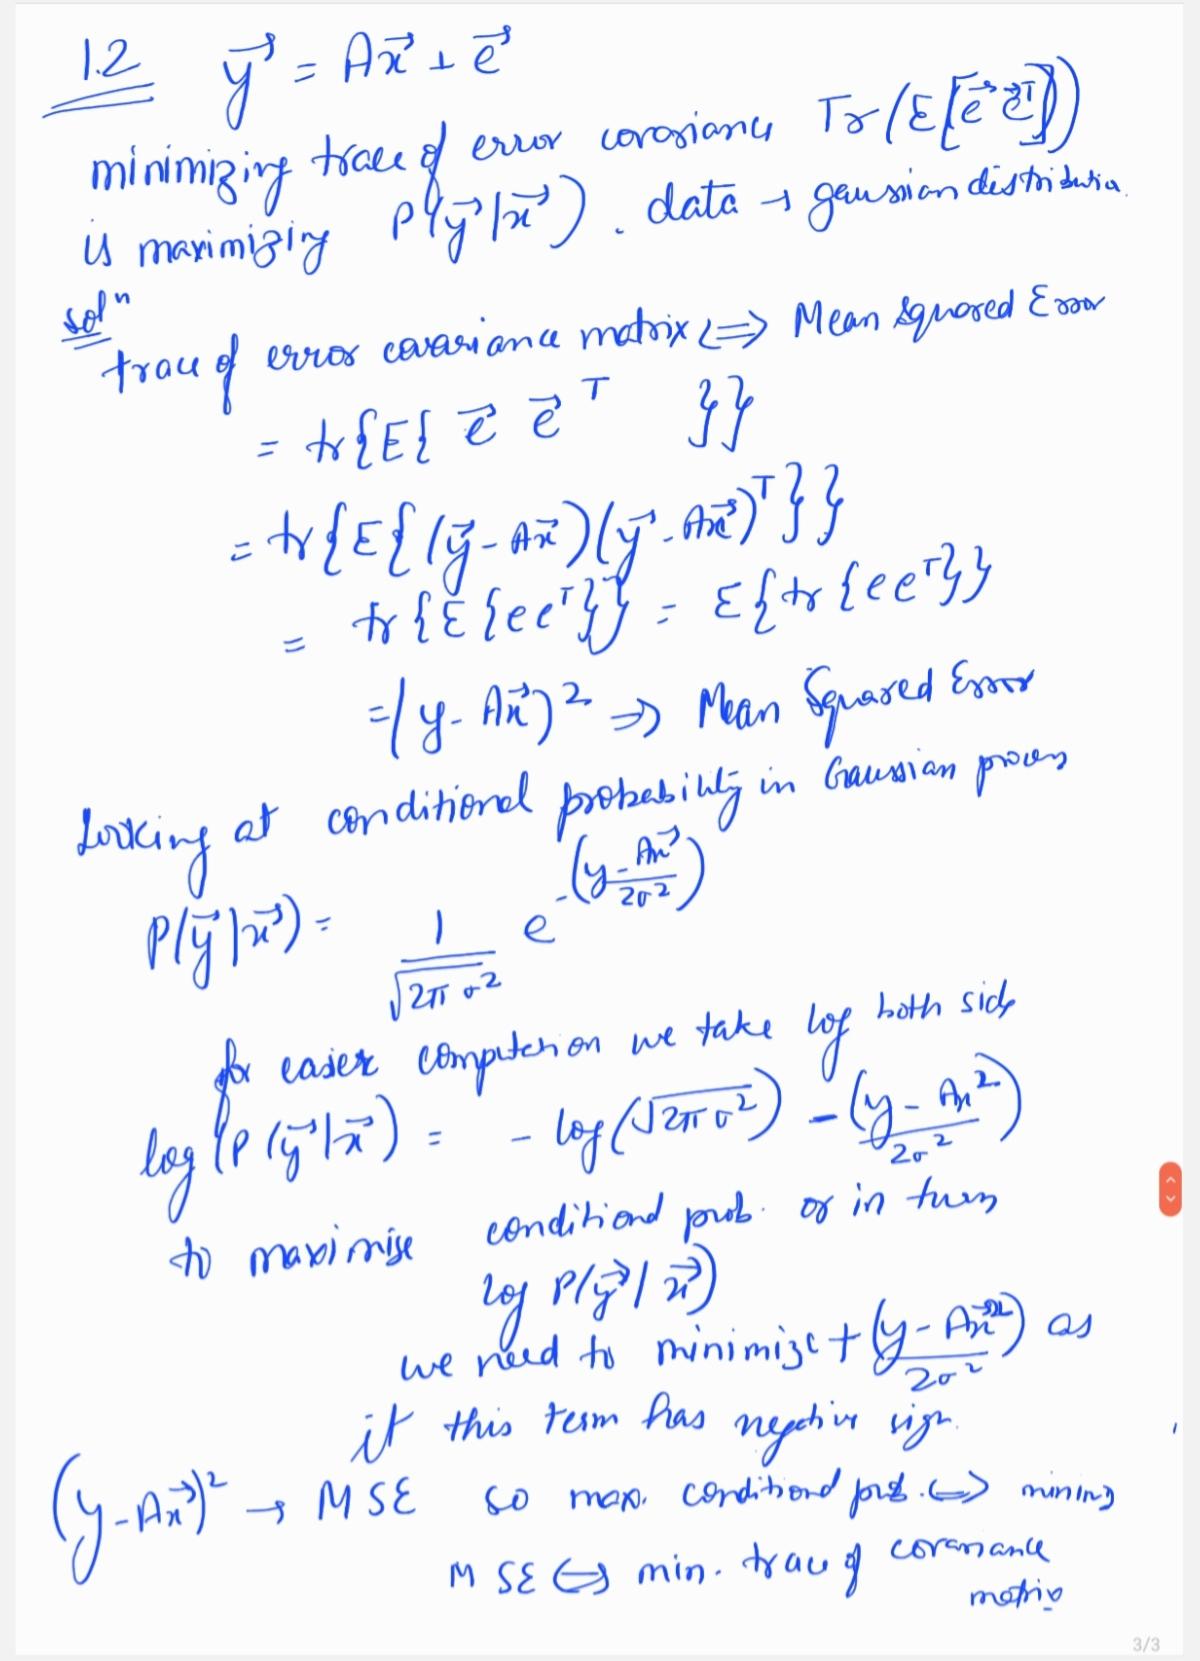 1.2 y⃗ = Ax⃗ + e⃗
minimizing trace of error covariance Tr(E[e⃗ e⃗ᵀ])
is maximizing P(y⃗|x⃗). data → gaussian distribution.
solⁿ
trace of error covariance matrix <=> Mean Squared Error
= tr{E{ e⃗ e⃗ᵀ }}
= tr{E{(y⃗ - Ax⃗)(y⃗ - Ax⃗)ᵀ}}
= tr{E{eeᵀ}} = E{tr{eeᵀ}}
= (y - Ax⃗)² => Mean Squared Error
Looking at conditional probability in Gaussian process
P(y⃗|x⃗) = 1/√(2πσ²) e^-((y - Ax⃗)/2σ²)
for easier computation we take log both side
log(P(y⃗|x⃗) = - log(√2πσ²) - (y - Ax²/2σ²)
to maximise conditional prob. or in turn
log P(y⃗|x⃗)
we need to minimize + (y - Ax⃗²/2σ²) as
it this term has negative sign.
(y - Ax⃗)² → MSE so max. conditional prob. <=> mining
MSE <=> min. trace of covariance
matrix
3/3